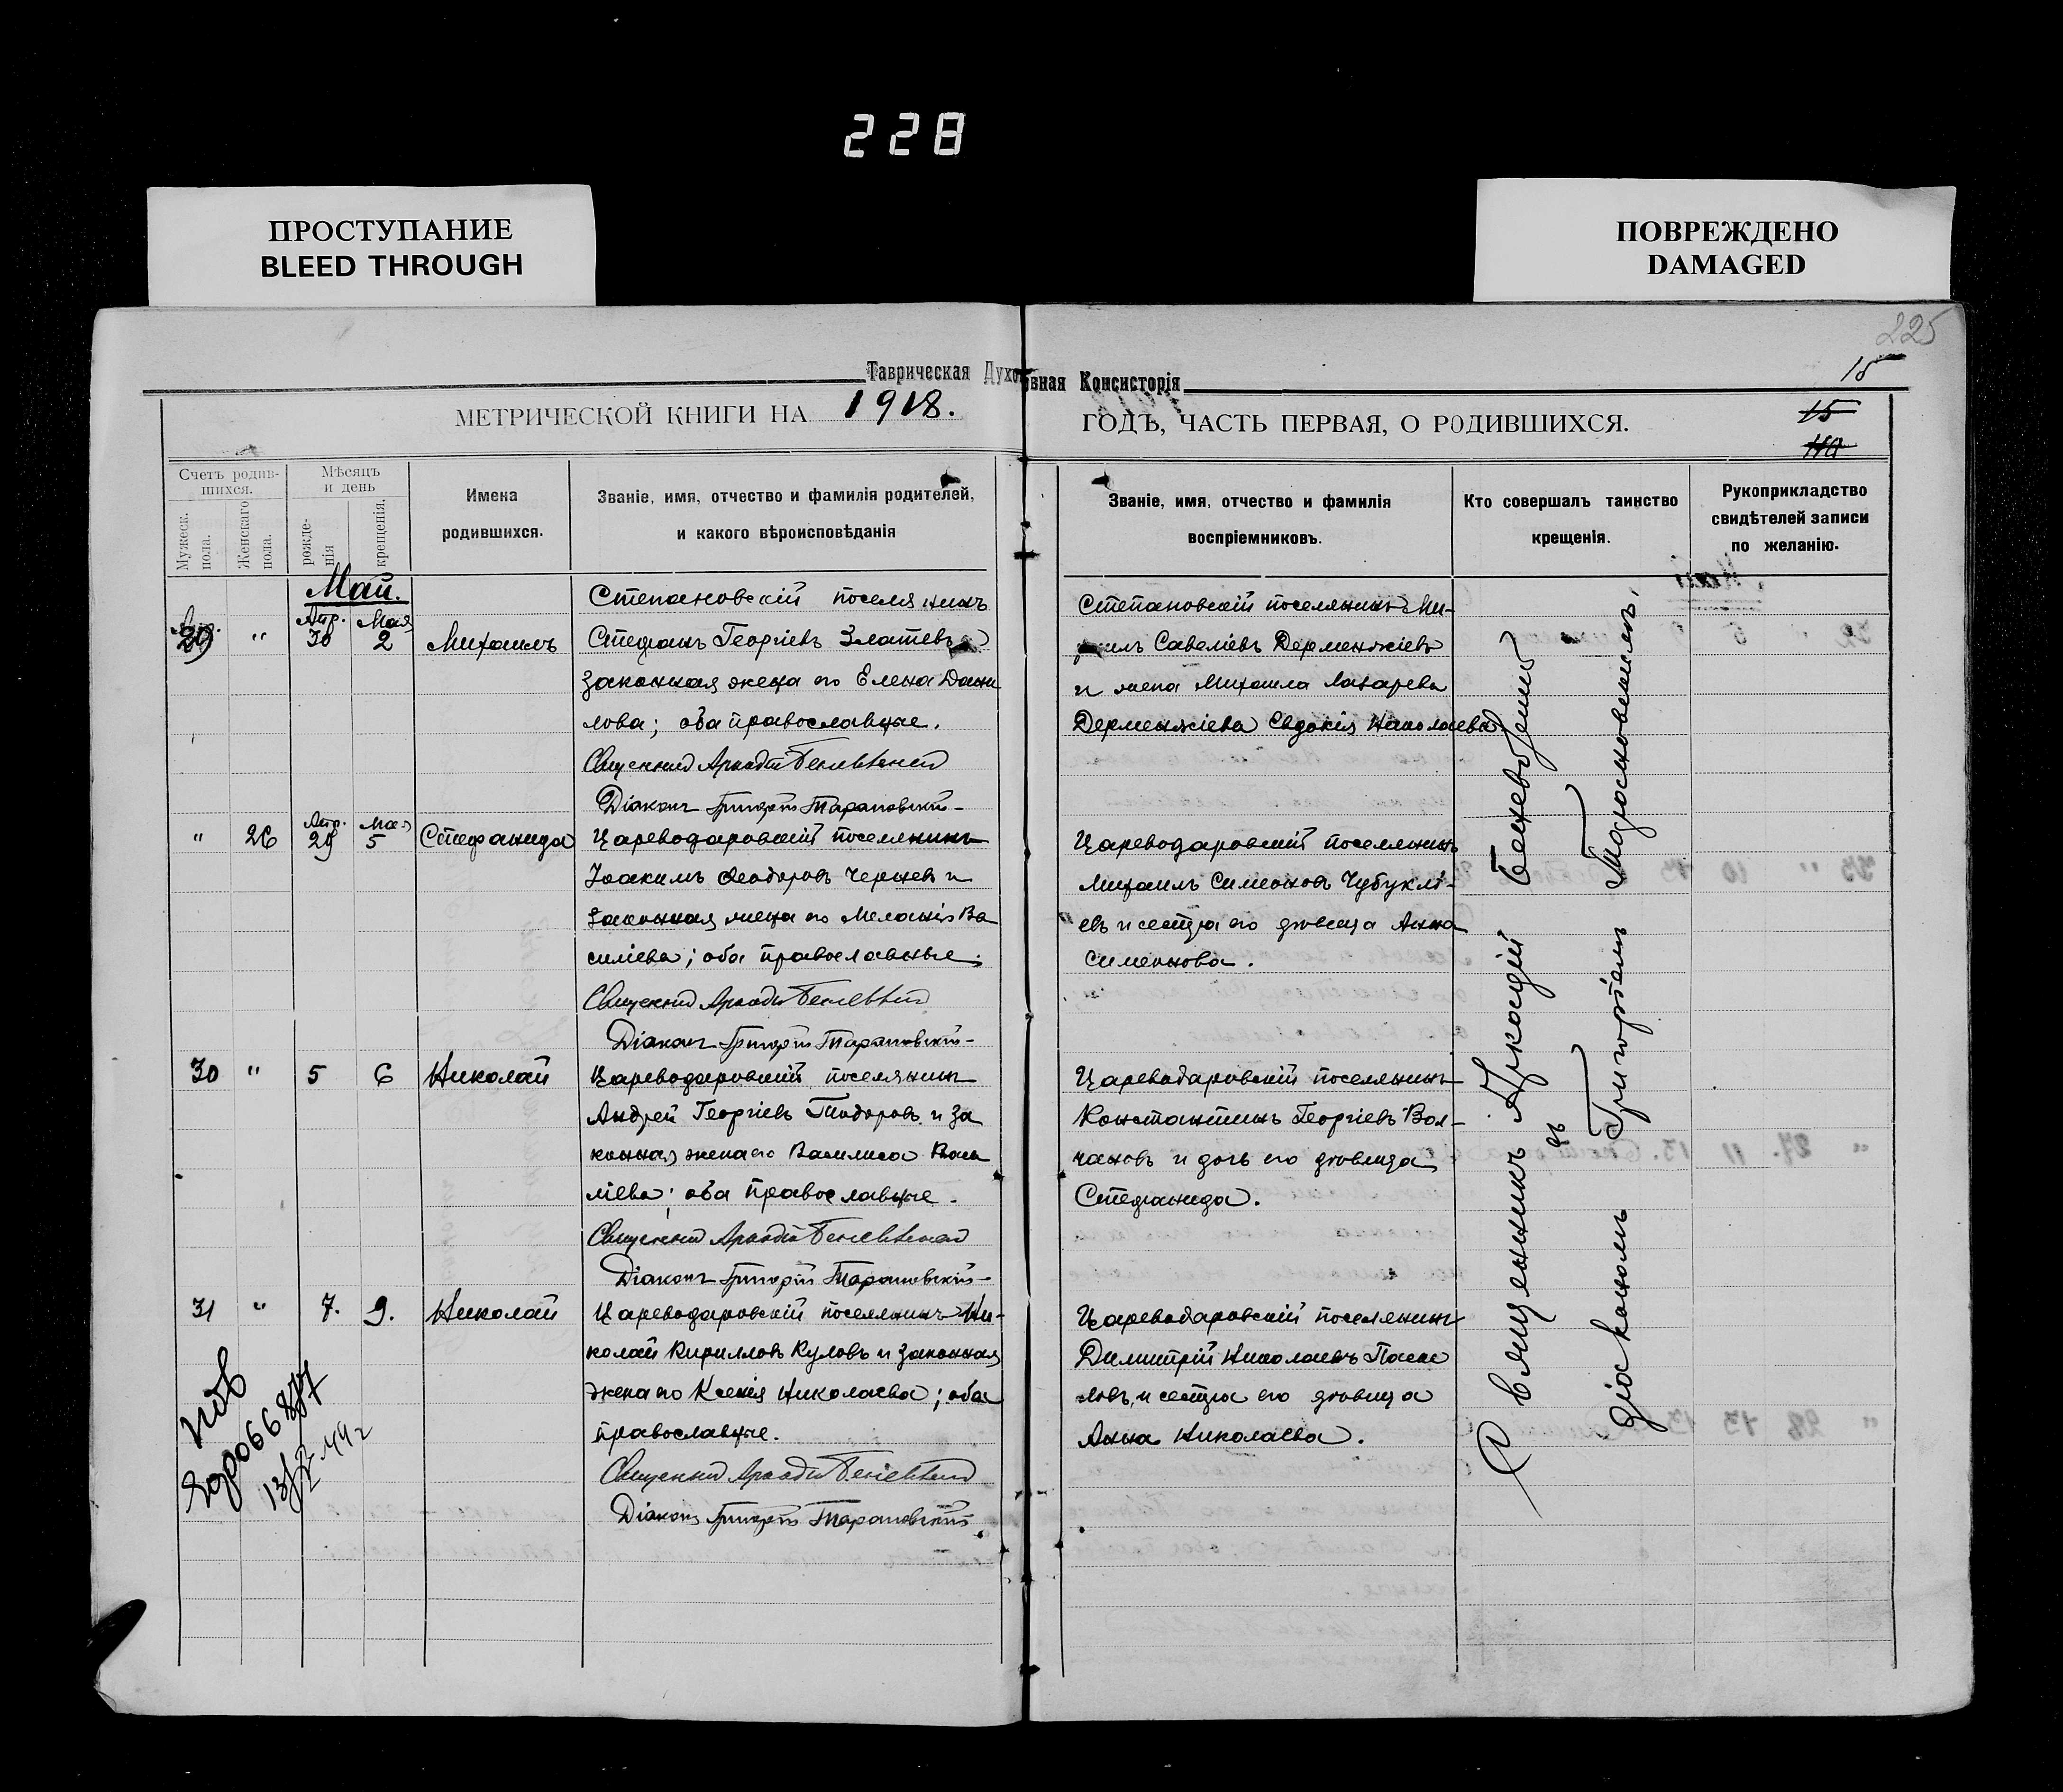 228
ПРОСТУПАНИЕ
BLEED THROUGH
ПОВРЕЖДЕНО
DAMAGED
225
Таврическая Духовная Консисторія
15
МЕТРИЧЕСКОЙ КНИГИ НА 1918.
ГОДЪ, ЧАСТЬ ПЕРВАЯ, О РОДИВШИХСЯ.
15
Счетъ родив-
шихся.
Мужеск.
пола.
Женскаго
пола.
Мѣсяцъ
и день
рожде-
нія
крещенія.
Имена
родившихся.
Званіе, имя, отчество и фамилія родителей,
и какого вѣроисповѣданія
Званіе, имя, отчество и фамилія
воспріемниковъ.
Кто совершалъ таинство
крещенія.
Рукоприкладство
свидѣтелей записи
по желанію.
Май.
Апр. Мая
29 " 30 2 Михаилъ
Степановскій поселянинъ
Стефанъ Георгіевъ Златевъ и
законная жена его Елена Дани
лова; оба православные.
Священникъ Аркадій
Діаконъ Григорій Тарановскій
Степановскій поселянинъ Ми-
хаилъ Савеліевъ Дерменжіевъ
и жена Михаила Лазарева
Дерменжіева Евдокія Николаева
Апр. Мая
" 26 29 5 Стефанида
Цареводаровскій поселянинъ
Іоакимъ Феодоровъ Чернев и
законная жена его Меланія Ва
силіева; оба православные;
Священникъ Аркадій
Діаконъ Григорій Тарановскій
Цареводаровскій поселянинъ
Михаилъ Симеоновъ Чубуклі-
евъ и сестра его дѣвица Анна
Симеонова.
30 " 5 6 Николай
Цареводаровскій поселянинъ
Андрей Георгіевъ Тодоровъ и за
конная жена его Василиса Васи
ліева; оба православные.
Священникъ Аркадій
Діаконъ Григорій Тарановскій
Цареводаровскій поселянинъ
Константинъ Георгіевъ Вол-
чановъ и дочь его дѣвица
Стефанида.
31 " 7. 9. Николай
Цареводаровскій поселянинъ Ни-
колай Кирилловъ Куловъ и законная
жена его Ксенія Николаева; оба
православные.
Священникъ Аркадій
Діаконъ Григорій Тарановскій
Цареводаровскій поселянинъ
Димитрій Николаевъ Паска
ловъ и сестра его дѣвица
Анна Николаева.
Священникъ Аркадій
съ
діакономъ Григоріемъ